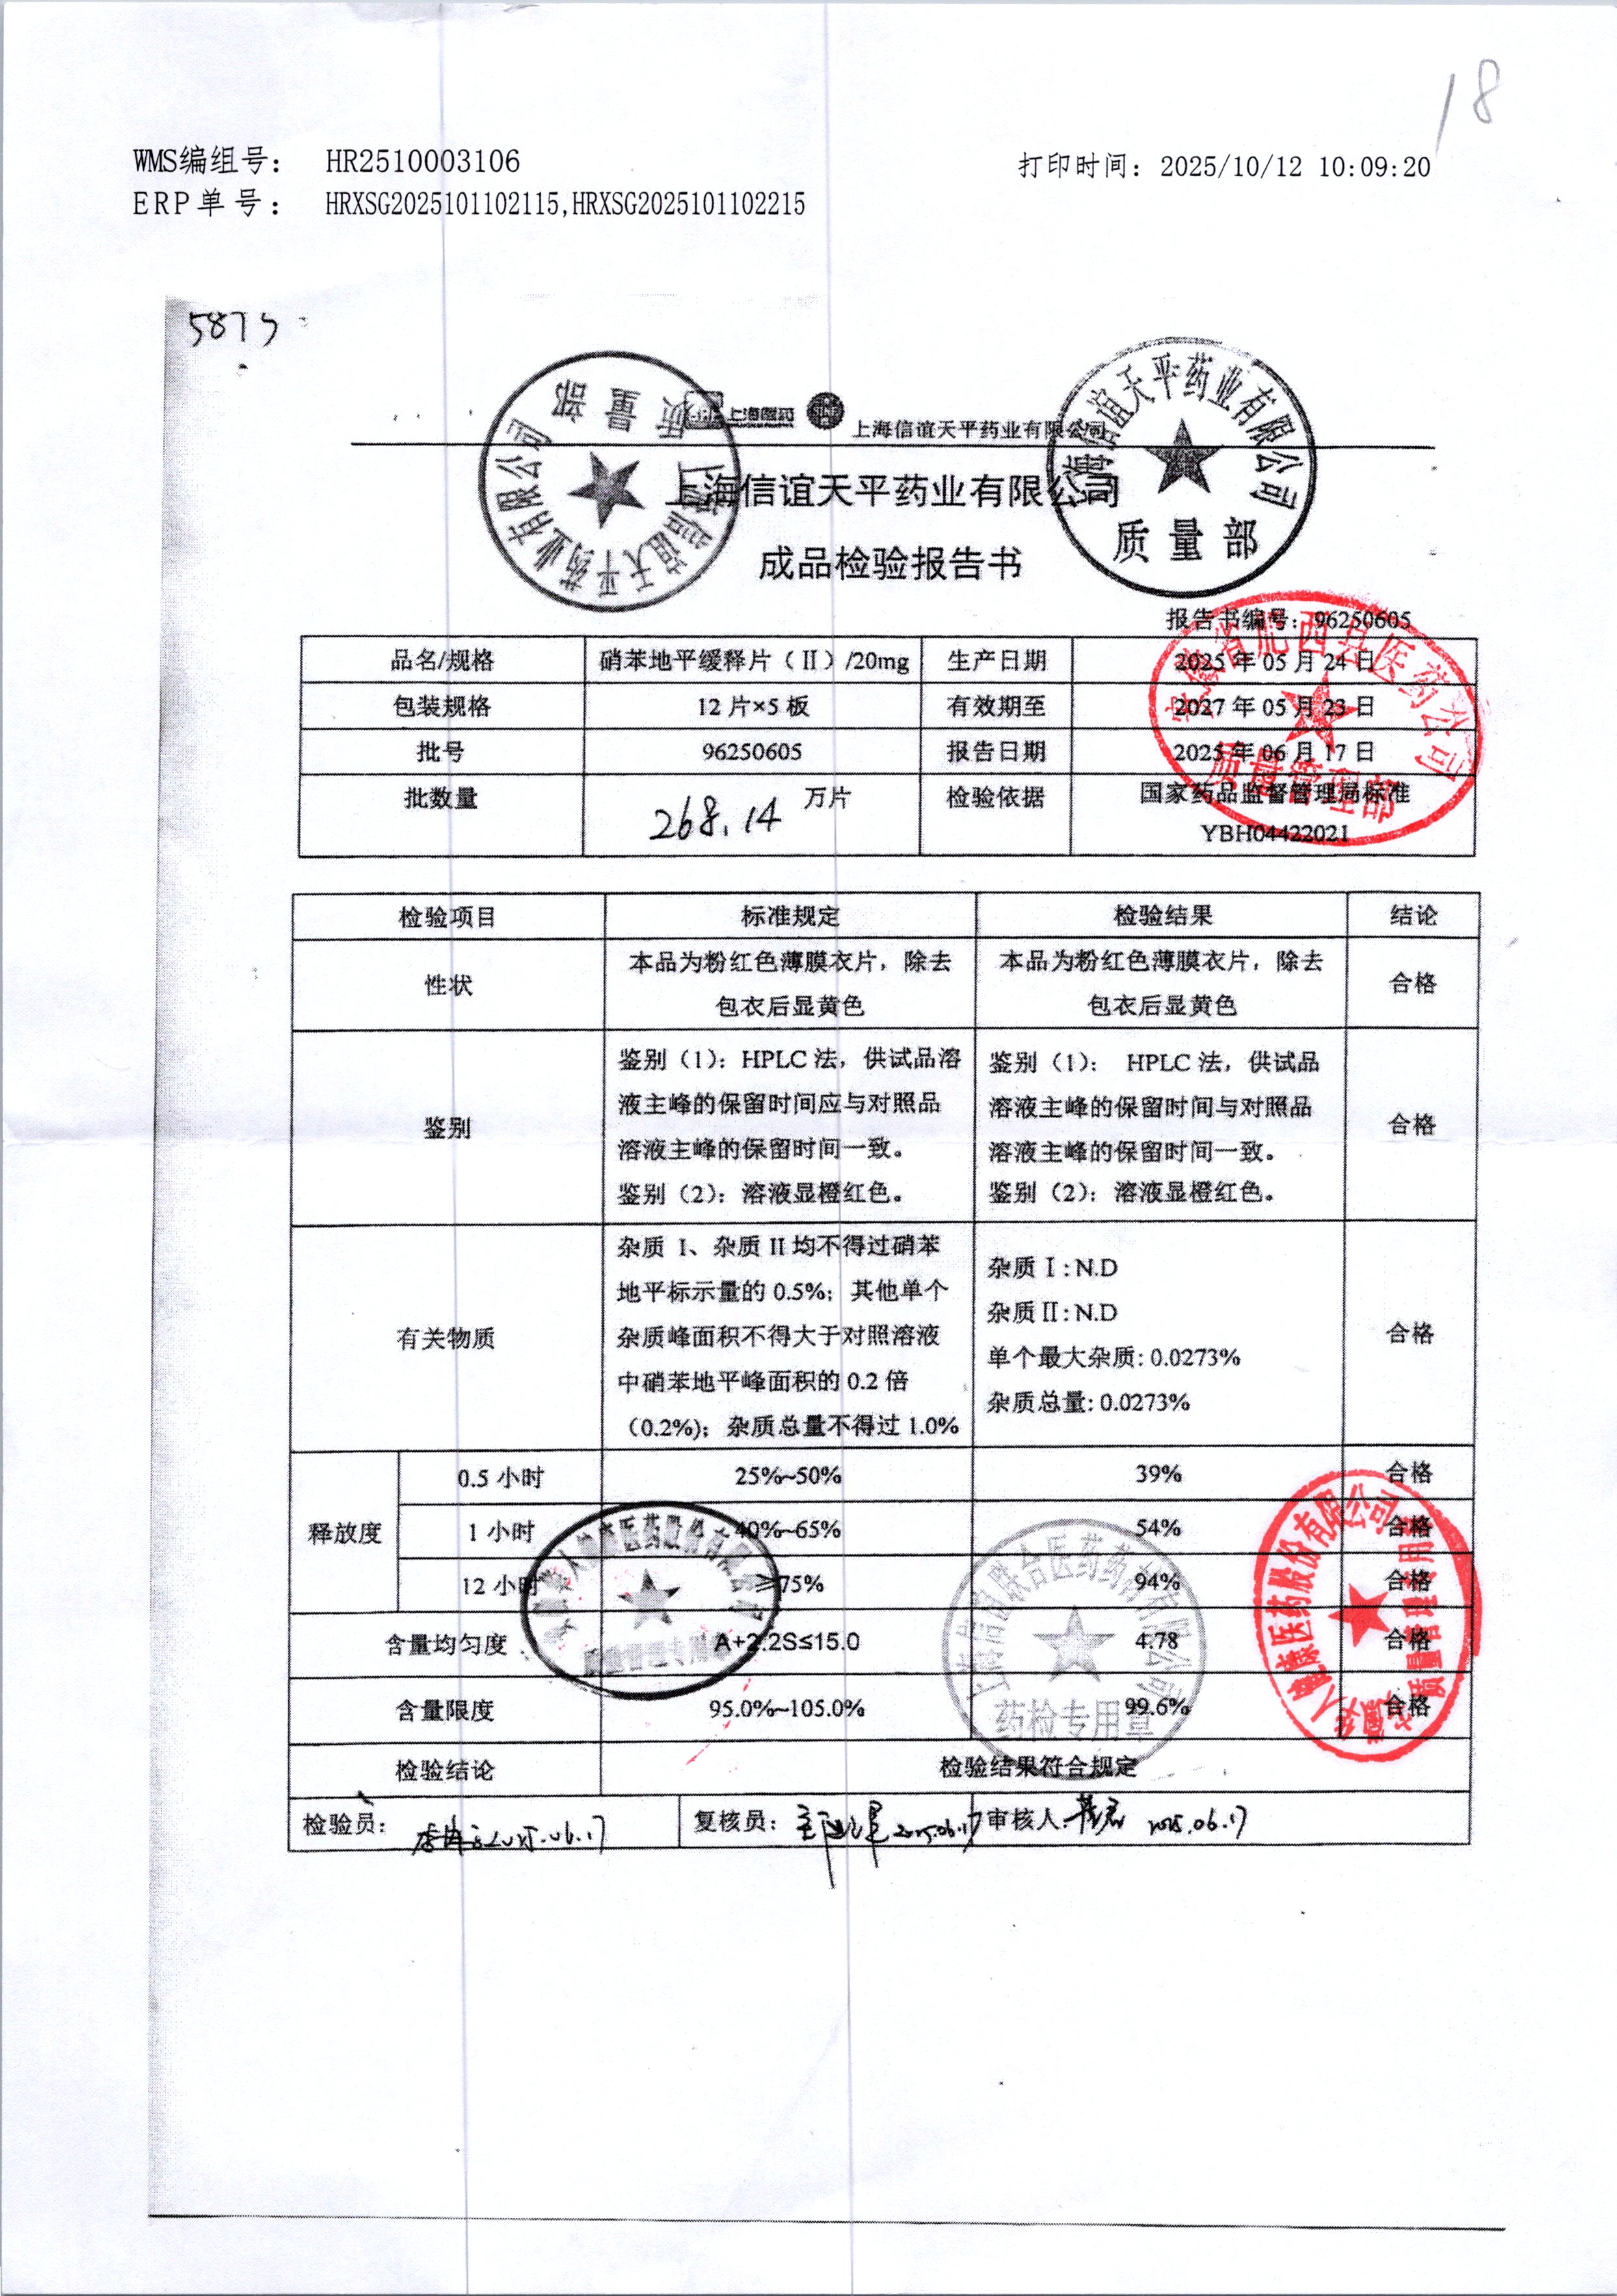 18
WMS编组号： HR2510003106
打印时间：2025/10/12 10:09:20
ERP单号： HRXSG2025101102115,HRXSG2025101102215
上海医药
上海信谊天平药业有限公司
上海信谊天平药业有限公司 质量部
上海信谊天平药业有限公司 质量部
上海信谊天平药业有限公司
成品检验报告书
报告书编号：96250605
品名/规格 硝苯地平缓释片（Ⅱ）/20mg 生产日期 2025 年 05 月 24 日
包装规格 12 片×5 板 有效期至 2027 年 05 月 23 日
批号 96250605 报告日期 2025 年 06 月 17 日
批数量 268.14 万片 检验依据 国家药品监督管理局标准
YBH04422021
安徽省肥西县医药公司
质量管理部
检验项目 标准规定 检验结果 结论
性状
本品为粉红色薄膜衣片，除去
包衣后显黄色
本品为粉红色薄膜衣片，除去
包衣后显黄色
合格
鉴别
鉴别（1）：HPLC 法，供试品溶
液主峰的保留时间应与对照品
溶液主峰的保留时间一致。
鉴别（2）：溶液显橙红色。
鉴别（1）： HPLC 法，供试品
溶液主峰的保留时间与对照品
溶液主峰的保留时间一致。
鉴别（2）：溶液显橙红色。
合格
有关物质
杂质 I、杂质 II 均不得过硝苯
地平标示量的 0.5%；其他单个
杂质峰面积不得大于对照溶液
中硝苯地平峰面积的 0.2 倍
（0.2%）；杂质总量不得过 1.0%
杂质Ⅰ: N.D
杂质Ⅱ: N.D
单个最大杂质: 0.0273%
杂质总量: 0.0273%
合格
释放度
0.5 小时 25%~50% 39% 合格
1 小时 40%~65% 54% 合格
12 小时 ≥75% 94% 合格
含量均匀度 A+2.2S≤15.0 4.78 合格
含量限度 95.0%~105.0% 99.6% 合格
药检专用章
检验结论 检验结果符合规定
检验员： 2025.06.17 复核员： 2025.06.17 审核人: 2025.06.17